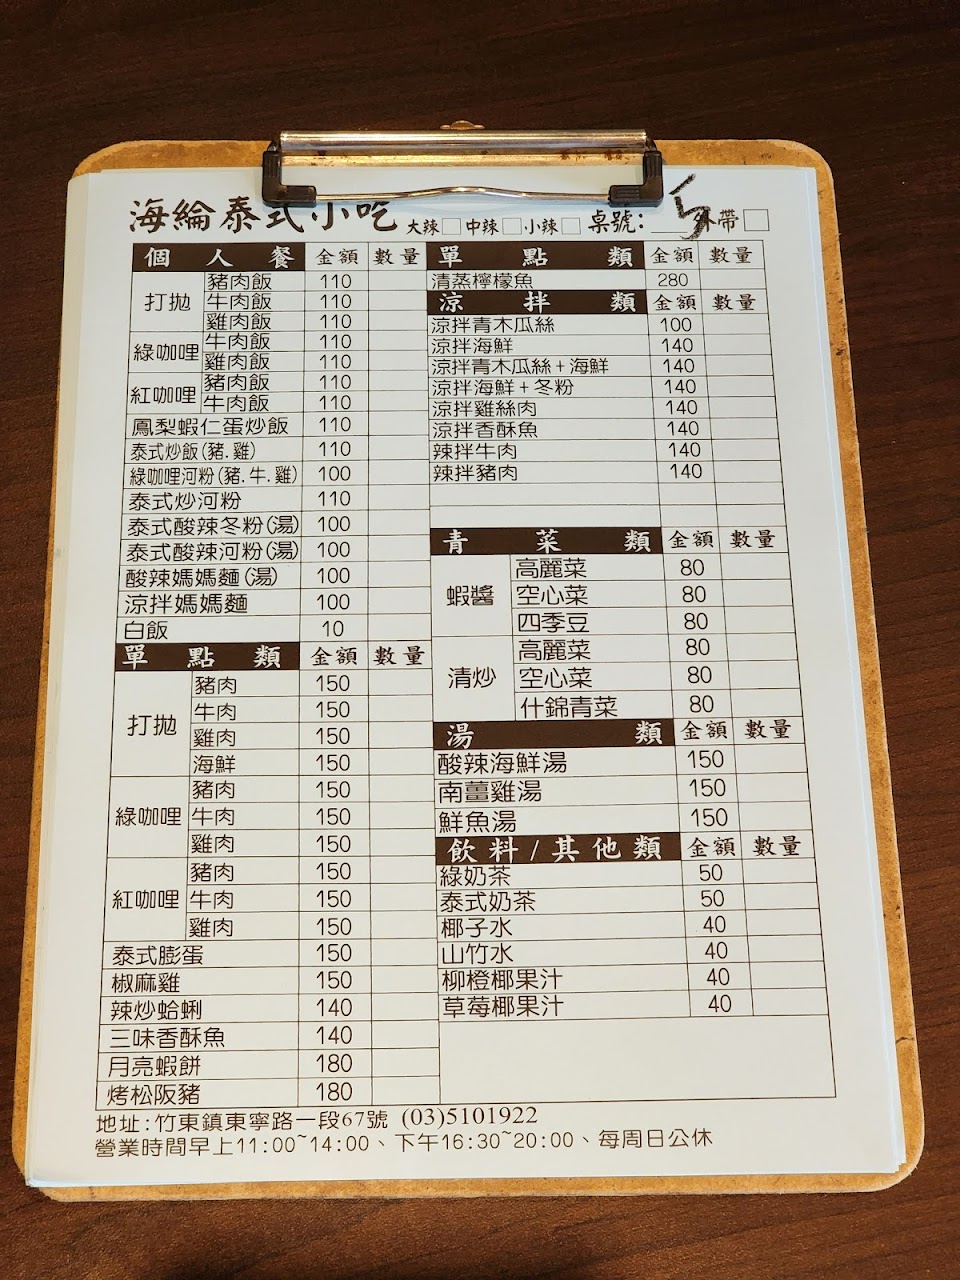 海綸泰式小吃 大辣 中辣 小辣 桌號: 5 外帶
個人餐 金額 數量
打拋
豬肉飯 110
牛肉飯 110
雞肉飯 110
綠咖哩
牛肉飯 110
雞肉飯 110
紅咖哩
豬肉飯 110
牛肉飯 110
鳳梨蝦仁蛋炒飯 110
泰式炒飯(豬.雞) 110
綠咖哩河粉(豬.牛.雞) 100
泰式炒河粉 110
泰式酸辣冬粉(湯) 100
泰式酸辣河粉(湯) 100
酸辣媽媽麵(湯) 100
涼拌媽媽麵 100
白飯 10
單點類 金額 數量
打拋
豬肉 150
牛肉 150
雞肉 150
海鮮 150
綠咖哩
豬肉 150
牛肉 150
雞肉 150
紅咖哩
豬肉 150
牛肉 150
雞肉 150
泰式膨蛋 150
椒麻雞 150
辣炒蛤蜊 140
三味香酥魚 140
月亮蝦餅 180
烤松阪豬 180
單點類 金額 數量
清蒸檸檬魚 280
涼拌類 金額 數量
涼拌青木瓜絲 100
涼拌海鮮 140
涼拌青木瓜絲+海鮮 140
涼拌海鮮+冬粉 140
涼拌雞絲肉 140
涼拌香酥魚 140
辣拌牛肉 140
辣拌豬肉 140
青菜類 金額 數量
蝦醬
高麗菜 80
空心菜 80
四季豆 80
清炒
高麗菜 80
空心菜 80
什錦青菜 80
湯類 金額 數量
酸辣海鮮湯 150
南薑雞湯 150
鮮魚湯 150
飲料/其他類 金額 數量
綠奶茶 50
泰式奶茶 50
椰子水 40
山竹水 40
柳橙椰果汁 40
草莓椰果汁 40
地址:竹東鎮東寧路一段67號 (03)5101922
營業時間早上11:00~14:00、下午16:30~20:00、每周日公休